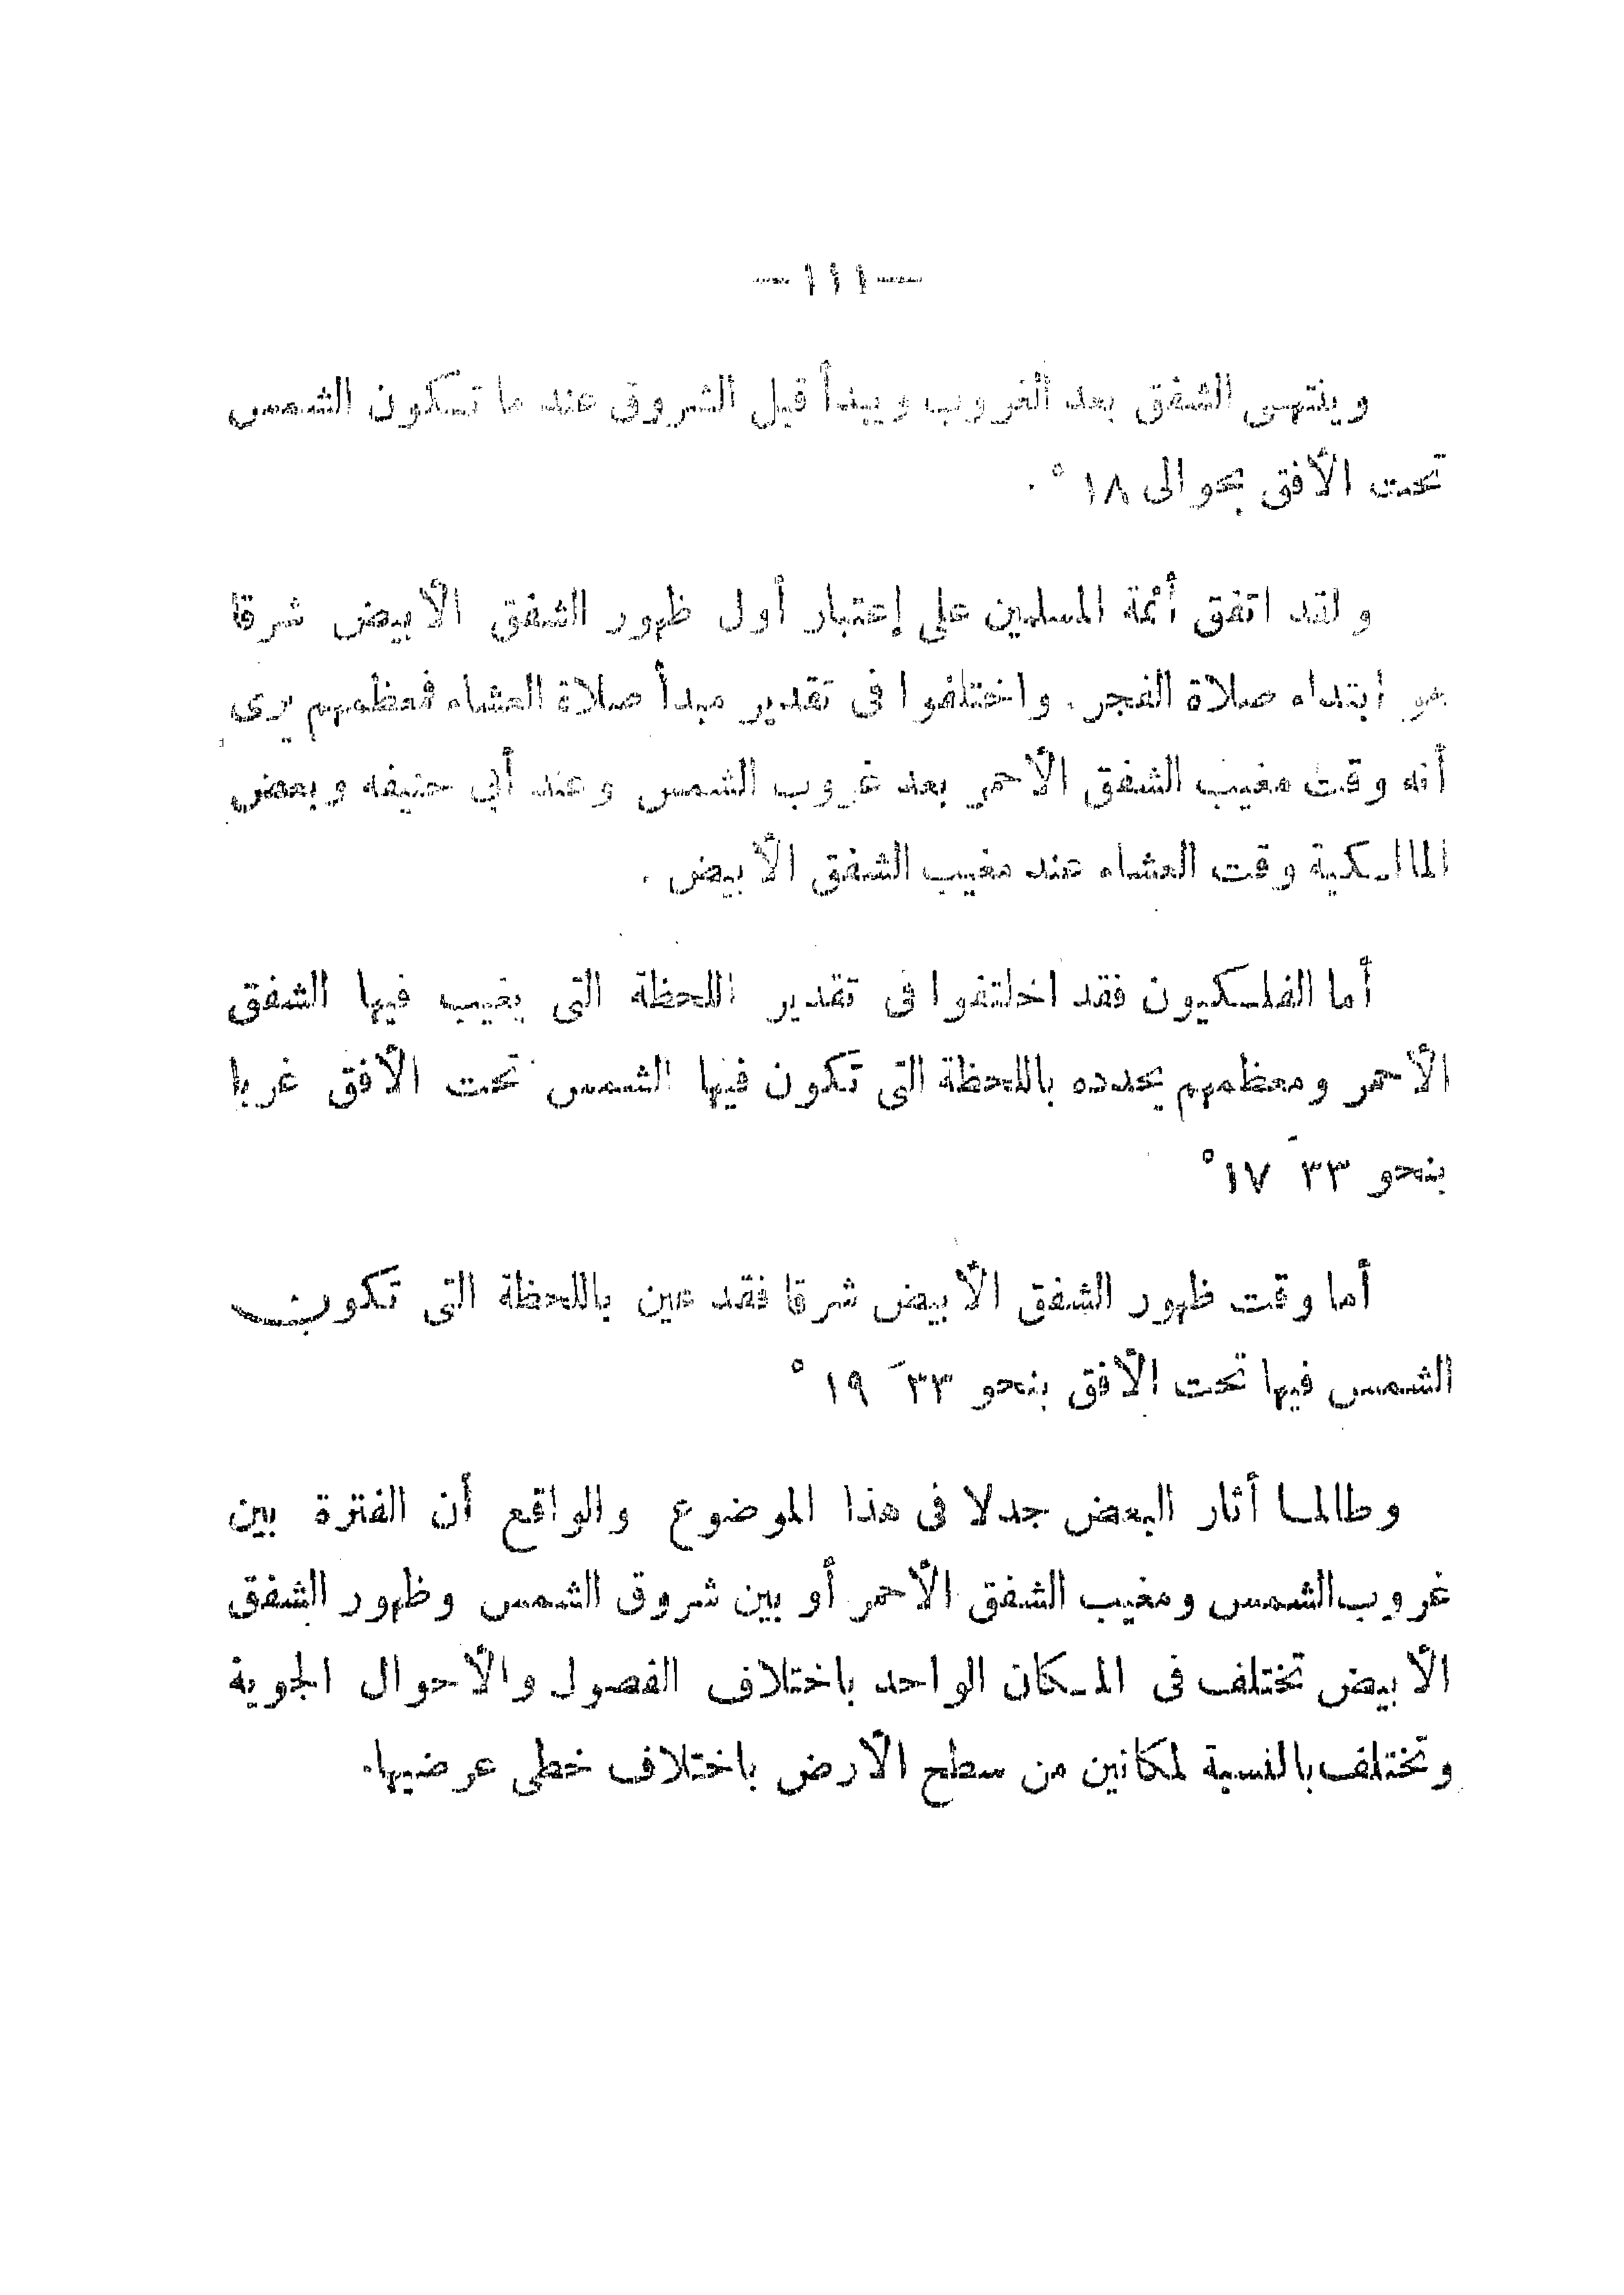 — ١١١ —
وينتهى الشفق بعد الغروب ويبدأ قبل الشروق عند ما تكون الشمس
تحت الأفق بحوالى ١٨ ° .
ولقد اتفق أئمة المسلمين على إعتبار أول ظهور الشفق الأبيض شرقا
هو ابتداء صلاة الفجر. واختلفوا فى تقدير مبدأ صلاة العشاء فمعظمهم يرى
أنه وقت مغيب الشفق الأحمر بعد غروب الشمس وعند أبي حنيفه وبعض
المالكية وقت العشاء عند مغيب الشفق الأبيض .
أما الفلكيون فقد اختلفوا فى تقدير اللحظة التى يغيب فيها الشفق
الأحمر ومعظمهم يحدده باللحظة التى تكون فيها الشمس تحت الأفق غربا
بنحو ٣٣ َ ١٧ °
أما وقت ظهور الشفق الأبيض شرقا فقد عين باللحظة التى تكون
الشمس فيها تحت الأفق بنحو ٣٣ َ ١٩ °
وطالما أثار البعض جدلا فى هذا الموضوع والواقع أن الفترة بين
غروب الشمس ومغيب الشفق الأحمر أو بين شروق الشمس وظهور الشفق
الأبيض تختلف فى المكان الواحد باختلاف الفصول والأحوال الجوية
وتختلف بالنسبة لمكانين من سطح الأرض باختلاف خطى عرضيها.